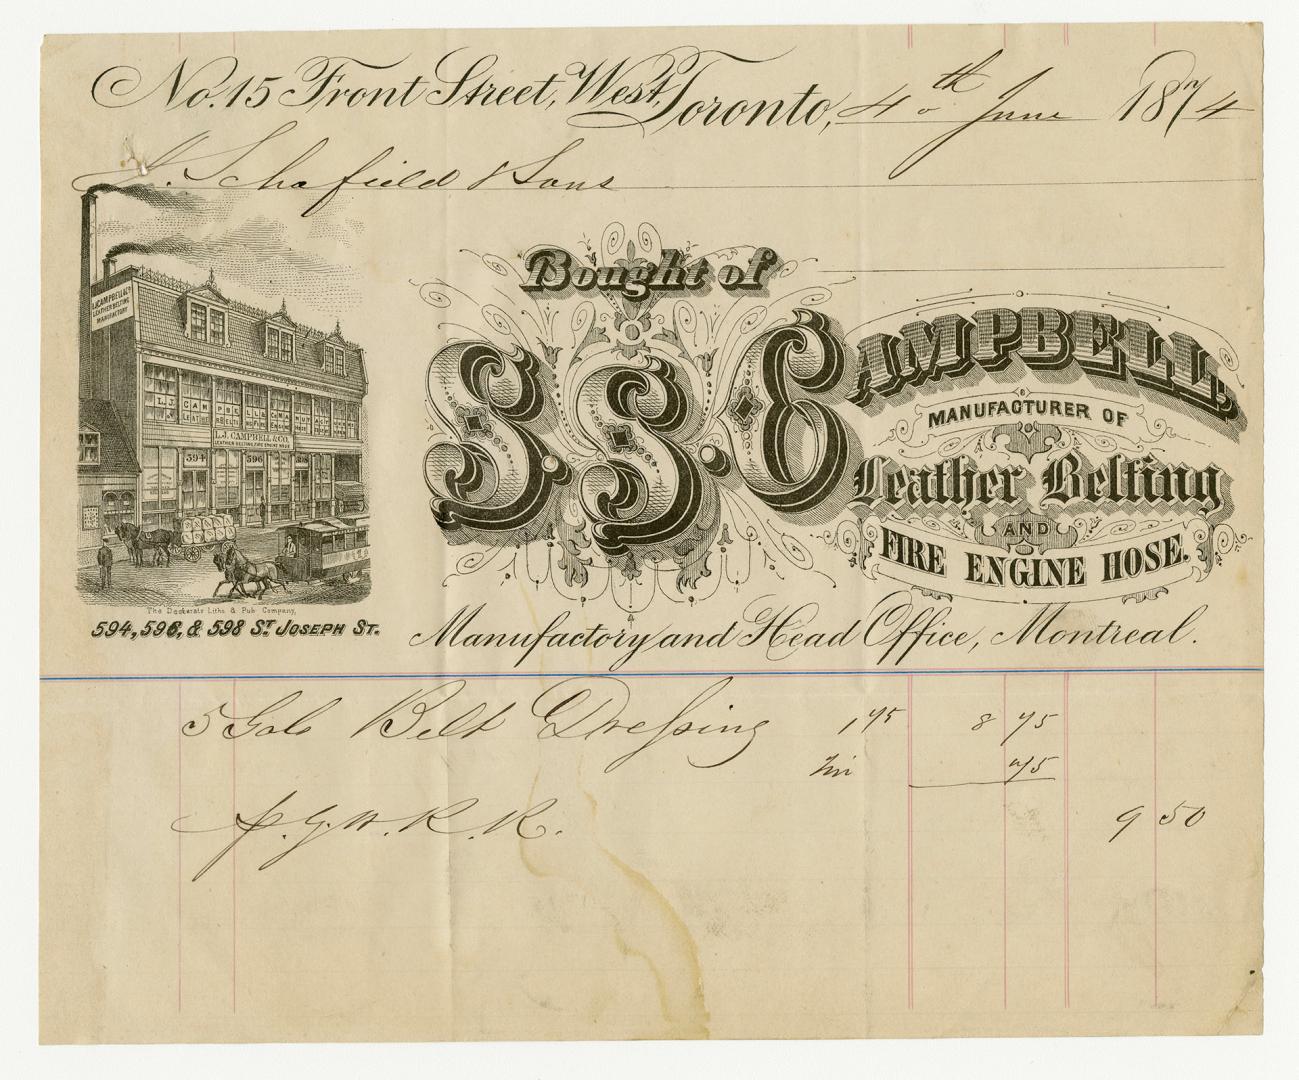 No. 15 Front Street, West, Toronto, 4th June 1874
J. Schofield & Sons
Bought of
S. S. CAMPBELL,
MANUFACTURER OF
Leather Belting
AND
FIRE ENGINE HOSE.
Manufactory and Head Office, Montreal.
L.J. CAMPBELL & Co
LEATHER BELTING
MANUFACTORY
L.J. CAMPBELL &
L.J. CAMPBELL & CO.
LEATHER BELTING, FIRE ENGINE HOSE
594 596 598
Litho & Pub Company,
594, 596, & 598 ST. JOSEPH ST.
5 Gals Belt Dressing 1 75 8 75
Tin 75
G. W. R. R. 9 50